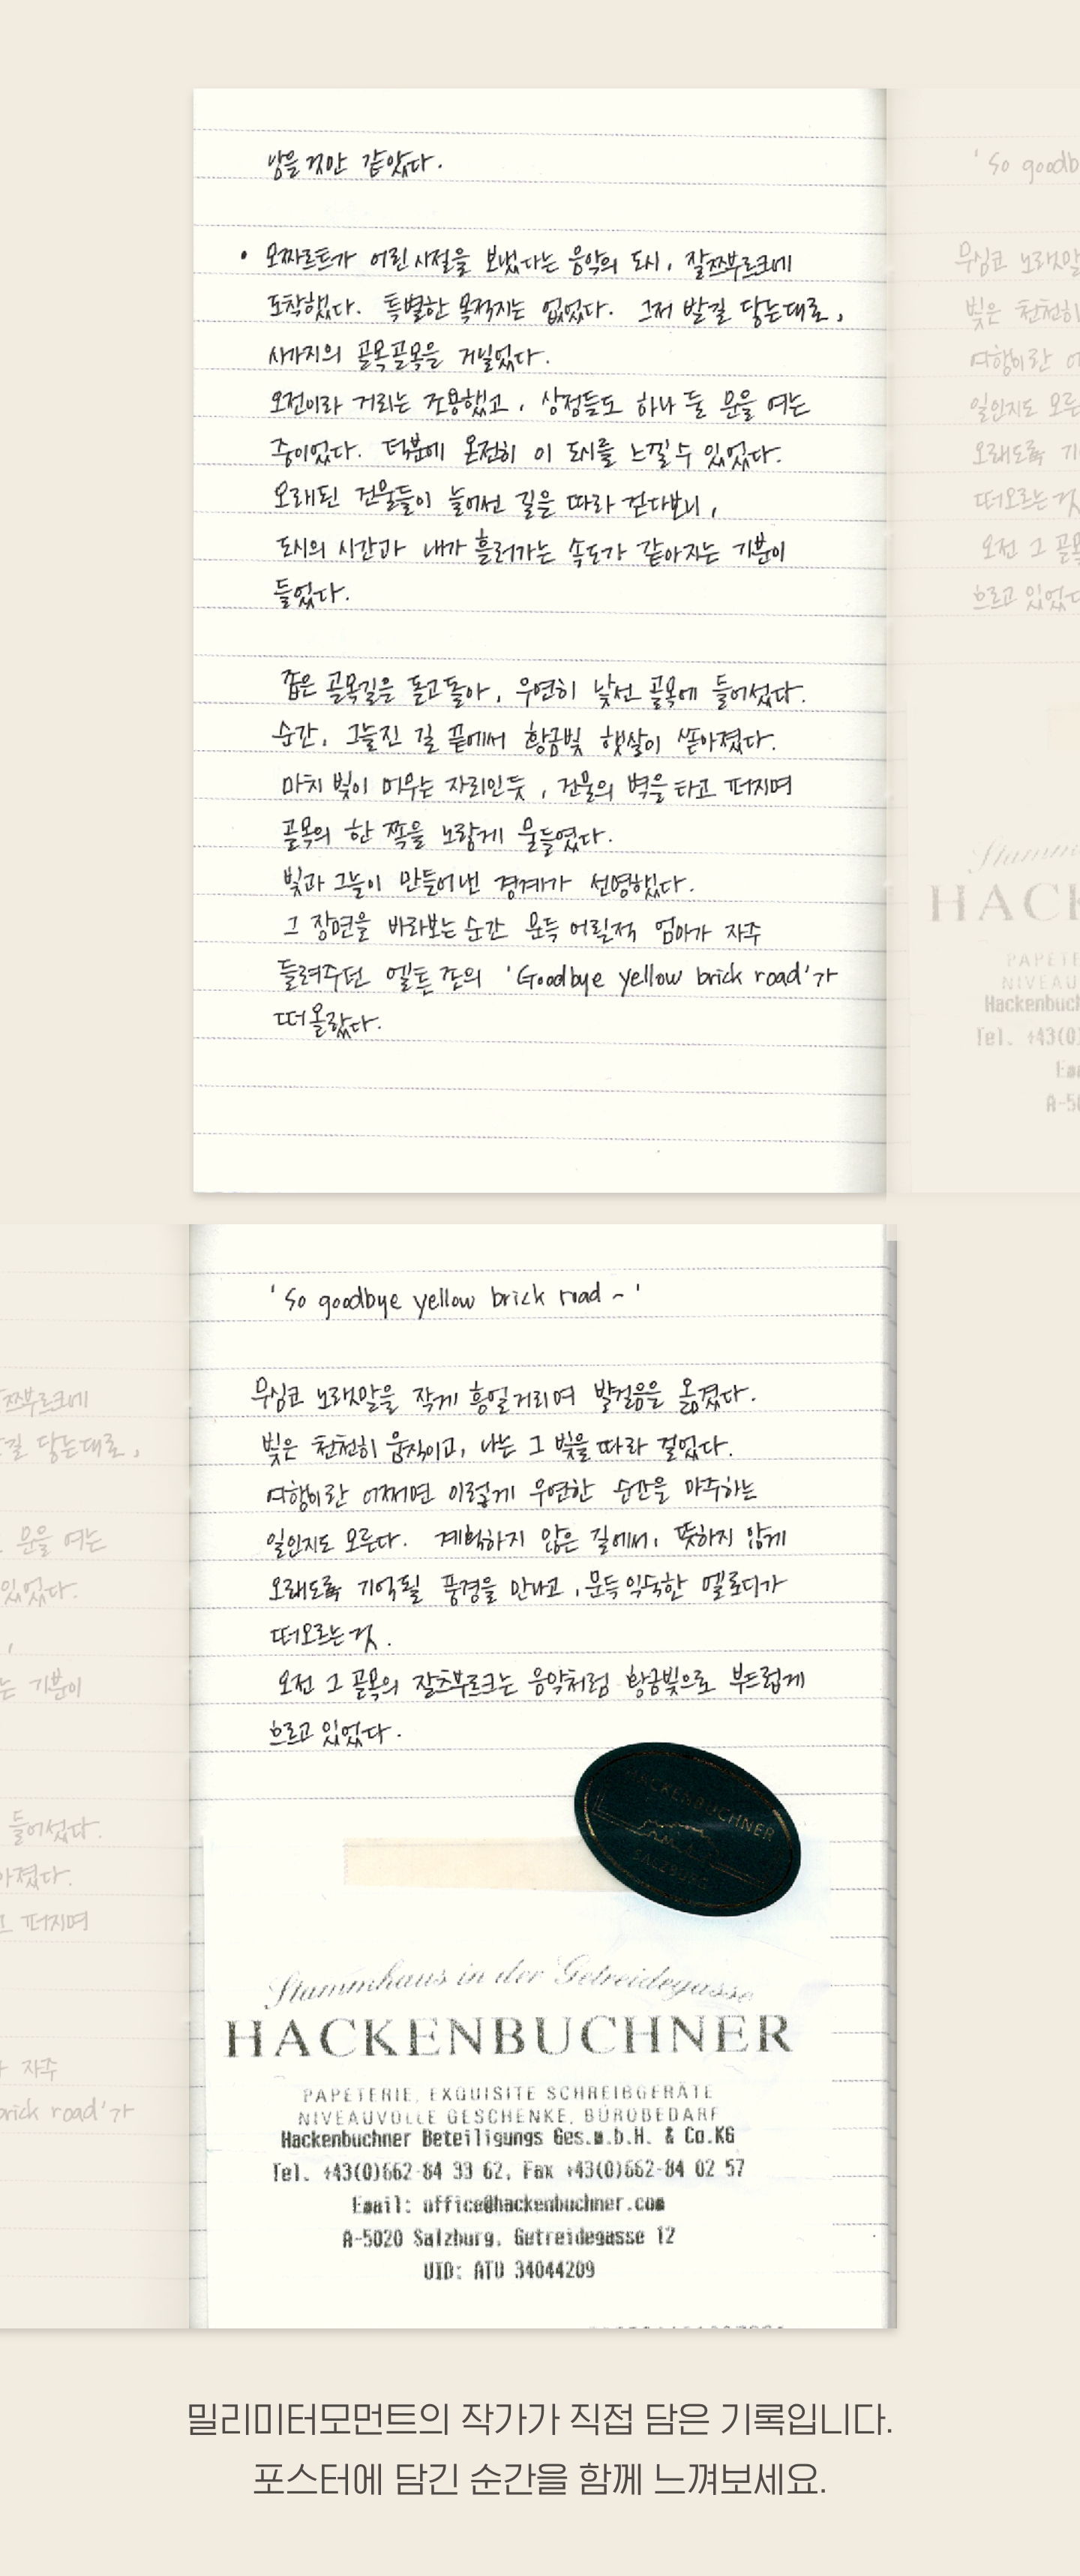 방울 것만 같았다.
• 모짜르트가 어린 시절을 보냈다는 음악의 도시, 잘쯔부르크에
도착했다. 특별한 목적지는 없었다. 그저 발길 닿는대로,
시가지의 골목골목을 거닐었다.
오전이라 거리는 조용했고, 상점들도 하나 둘 문을 여는
중이었다. 덕분에 온전히 이 도시를 느낄 수 있었다.
오래된 건물들이 늘어선 길을 따라 걷다보니,
도시의 시간과 내가 흘러가는 속도가 같아지는 기분이
들었다.
좁은 골목길을 돌고돌아, 우연히 낯선 골목에 들어섰다.
순간, 그늘진 길 끝에서 황금빛 햇살이 쏟아졌다.
마치 빛이 머무는 자리인듯, 건물의 벽을 타고 퍼지며
골목의 한 쪽을 노랗게 물들였다.
빛과 그늘이 만들어낸 경계가 선명했다.
그 장면을 바라보는 순간 문득 어릴적 엄마가 자주
들려주던 엘튼 존의 'Goodbye yellow brick road'가
떠올랐다.
'So goodbye yellow brick road ~'
무심코 노랫말을 작게 흥얼거리며 발걸음을 옮겼다.
빛은 천천히 움직이고, 나는 그 빛을 따라 걸었다.
여행이란 어쩌면 이렇게 우연한 순간을 마주하는
일인지도 모른다. 계획하지 않은 길에서, 뜻하지 않게
오래도록 기억될 풍경을 만나고, 문득 익숙한 멜로디가
떠오르는 것.
오전 그 골목의 잘츠부르크는 음악처럼 황금빛으로 부드럽게
흐르고 있었다.
HACKENBUCHNER
SALZBURG
Stammhaus in der Getreidegasse
HACKENBUCHNER
PAPETERIE, EXQUISITE SCHREIBGERÄTE
NIVEAUVOLLE GESCHENKE, BÜROBEDARF
Hackenbuchner Beteiligungs Ges.m.b.H. & Co.KG
Tel. +43(0)662-84 33 62, Fax +43(0)662-84 02 57
Email: office@hackenbuchner.com
A-5020 Salzburg, Getreidegasse 12
UID: ATU 34044209
밀리미터모먼트의 작가가 직접 담은 기록입니다.
포스터에 담긴 순간을 함께 느껴보세요.